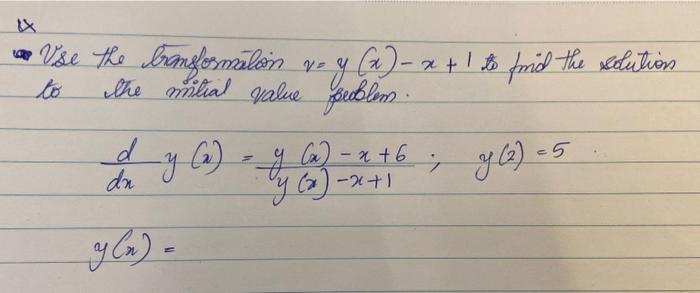 ex
Use the transformation v = y(x) - x + 1 to find the solution
to the initial value problem.
d/dx y(x) = y(x) - x + 6 / y(x) - x + 1 ; y(2) = 5
y(x) =